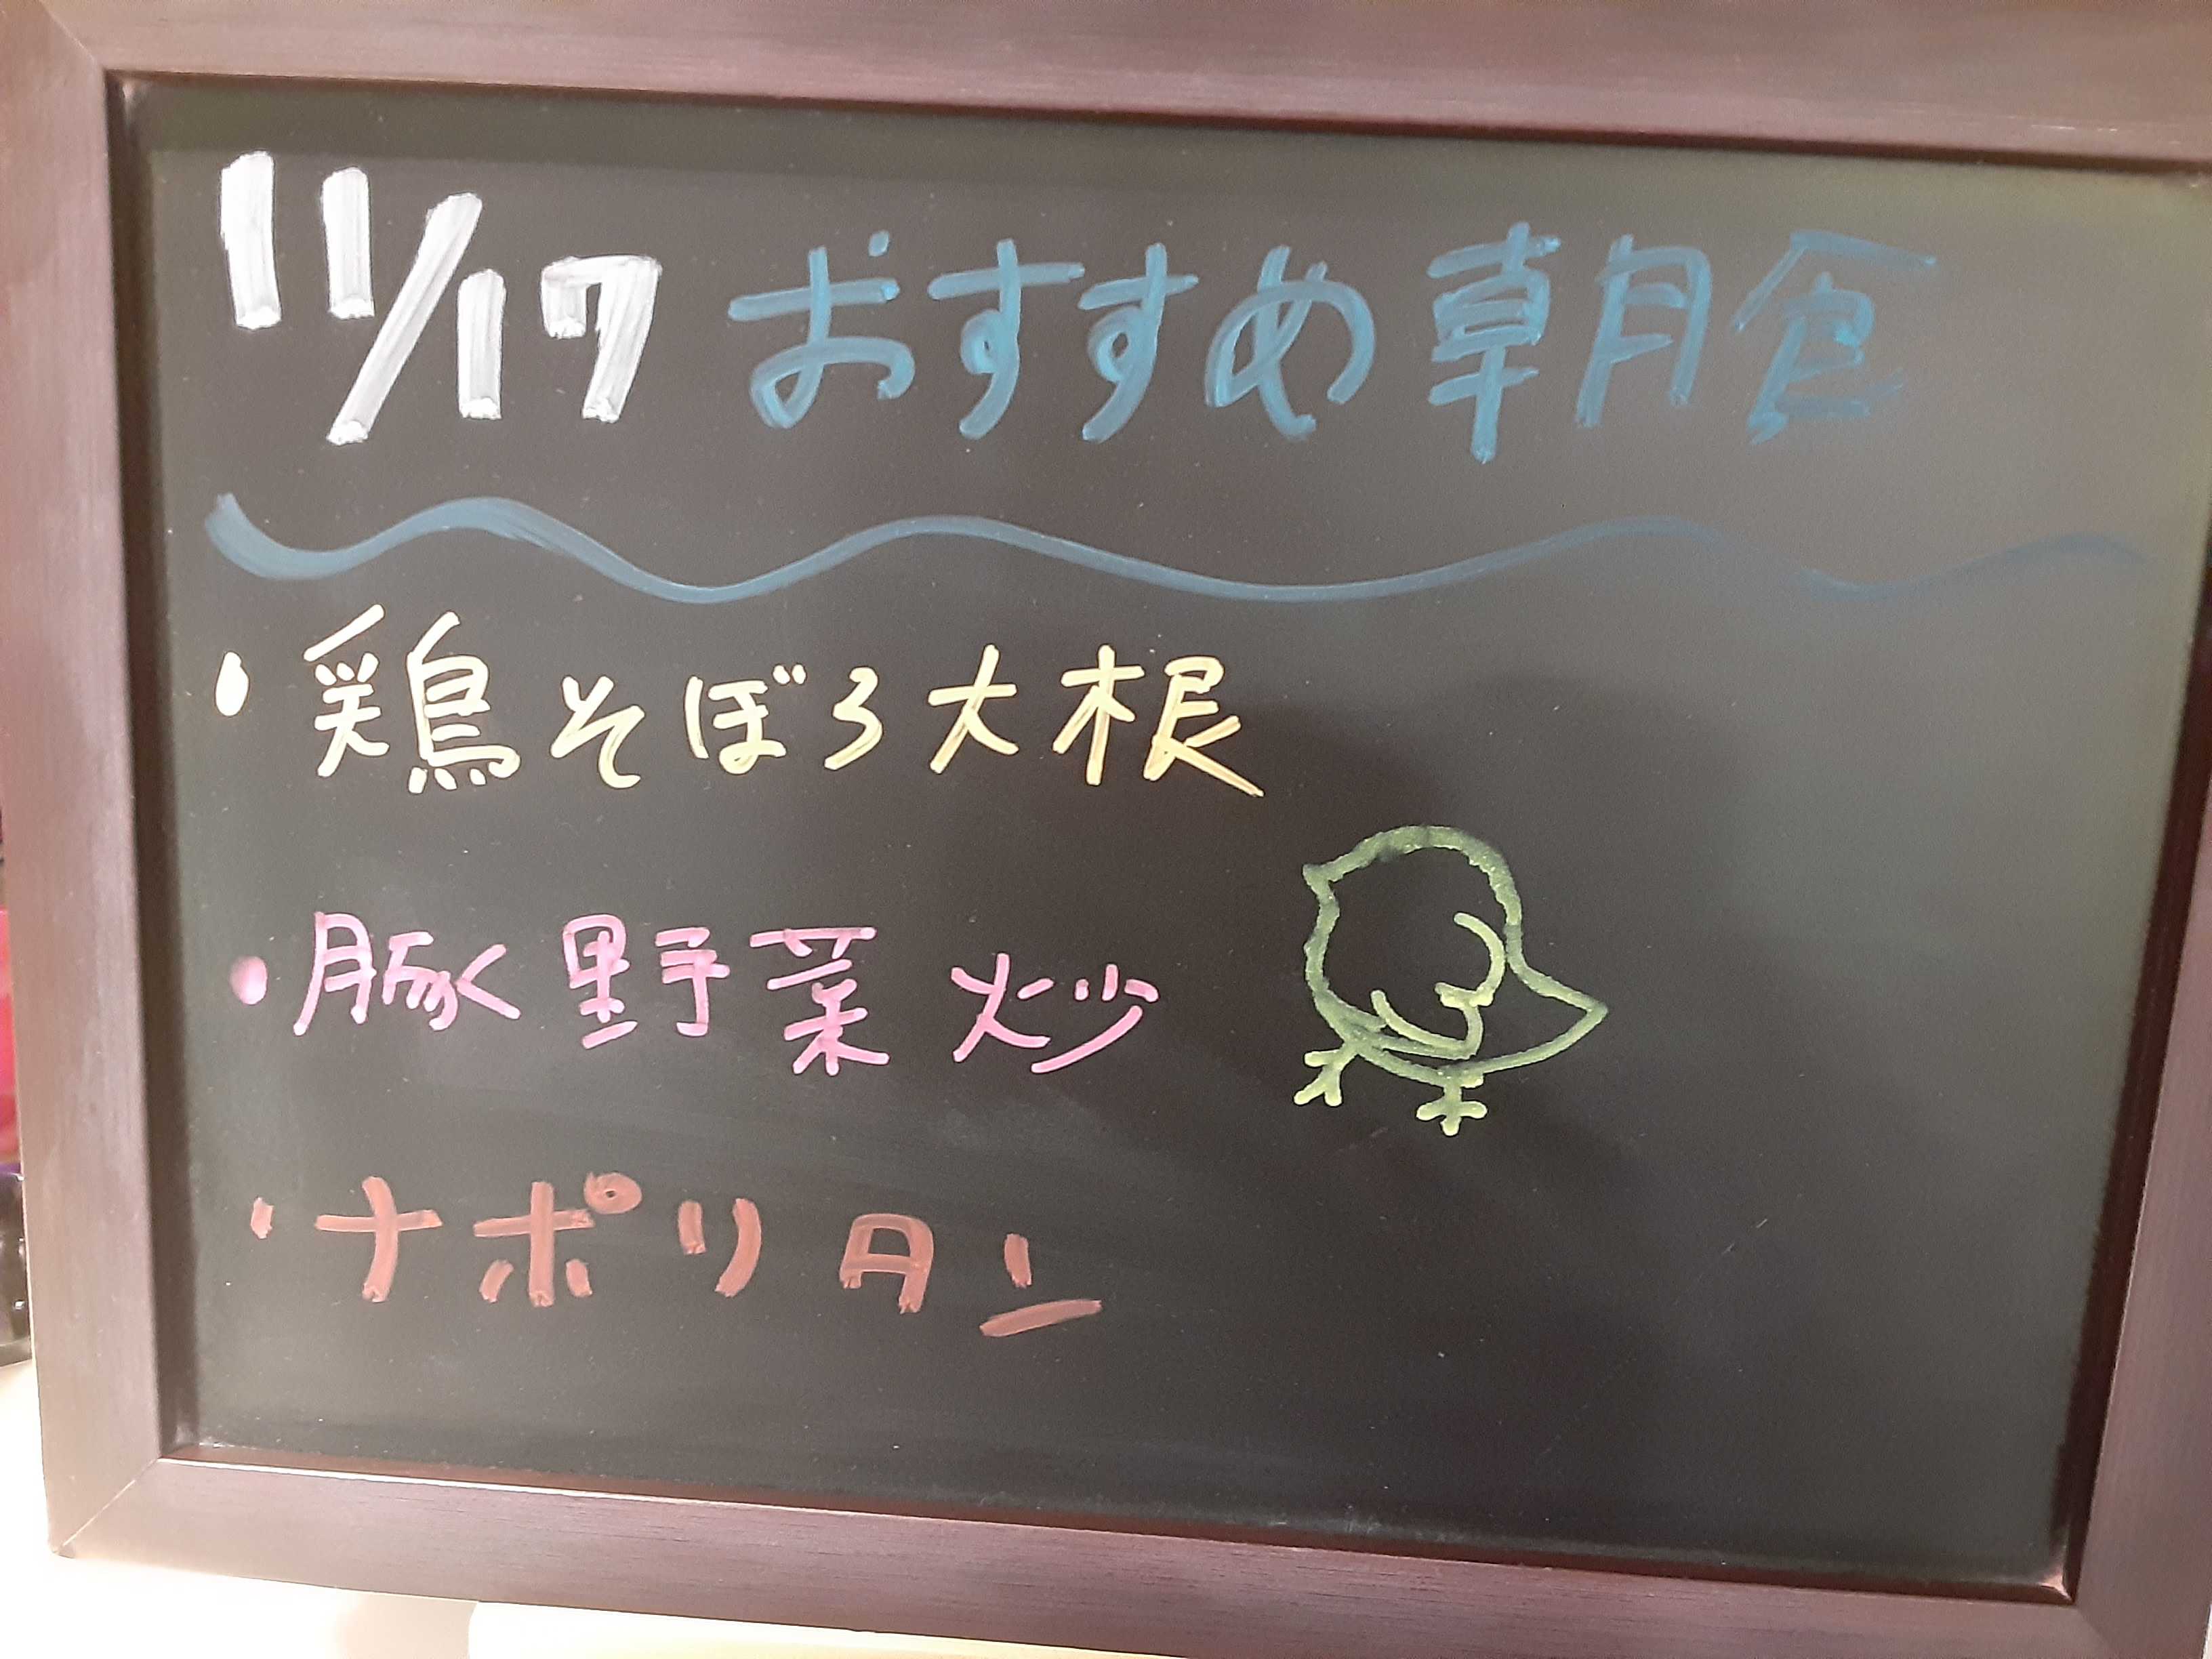 11/17 おすすめ朝食
・鶏そぼろ大根
・豚野菜炒
・ナポリタン